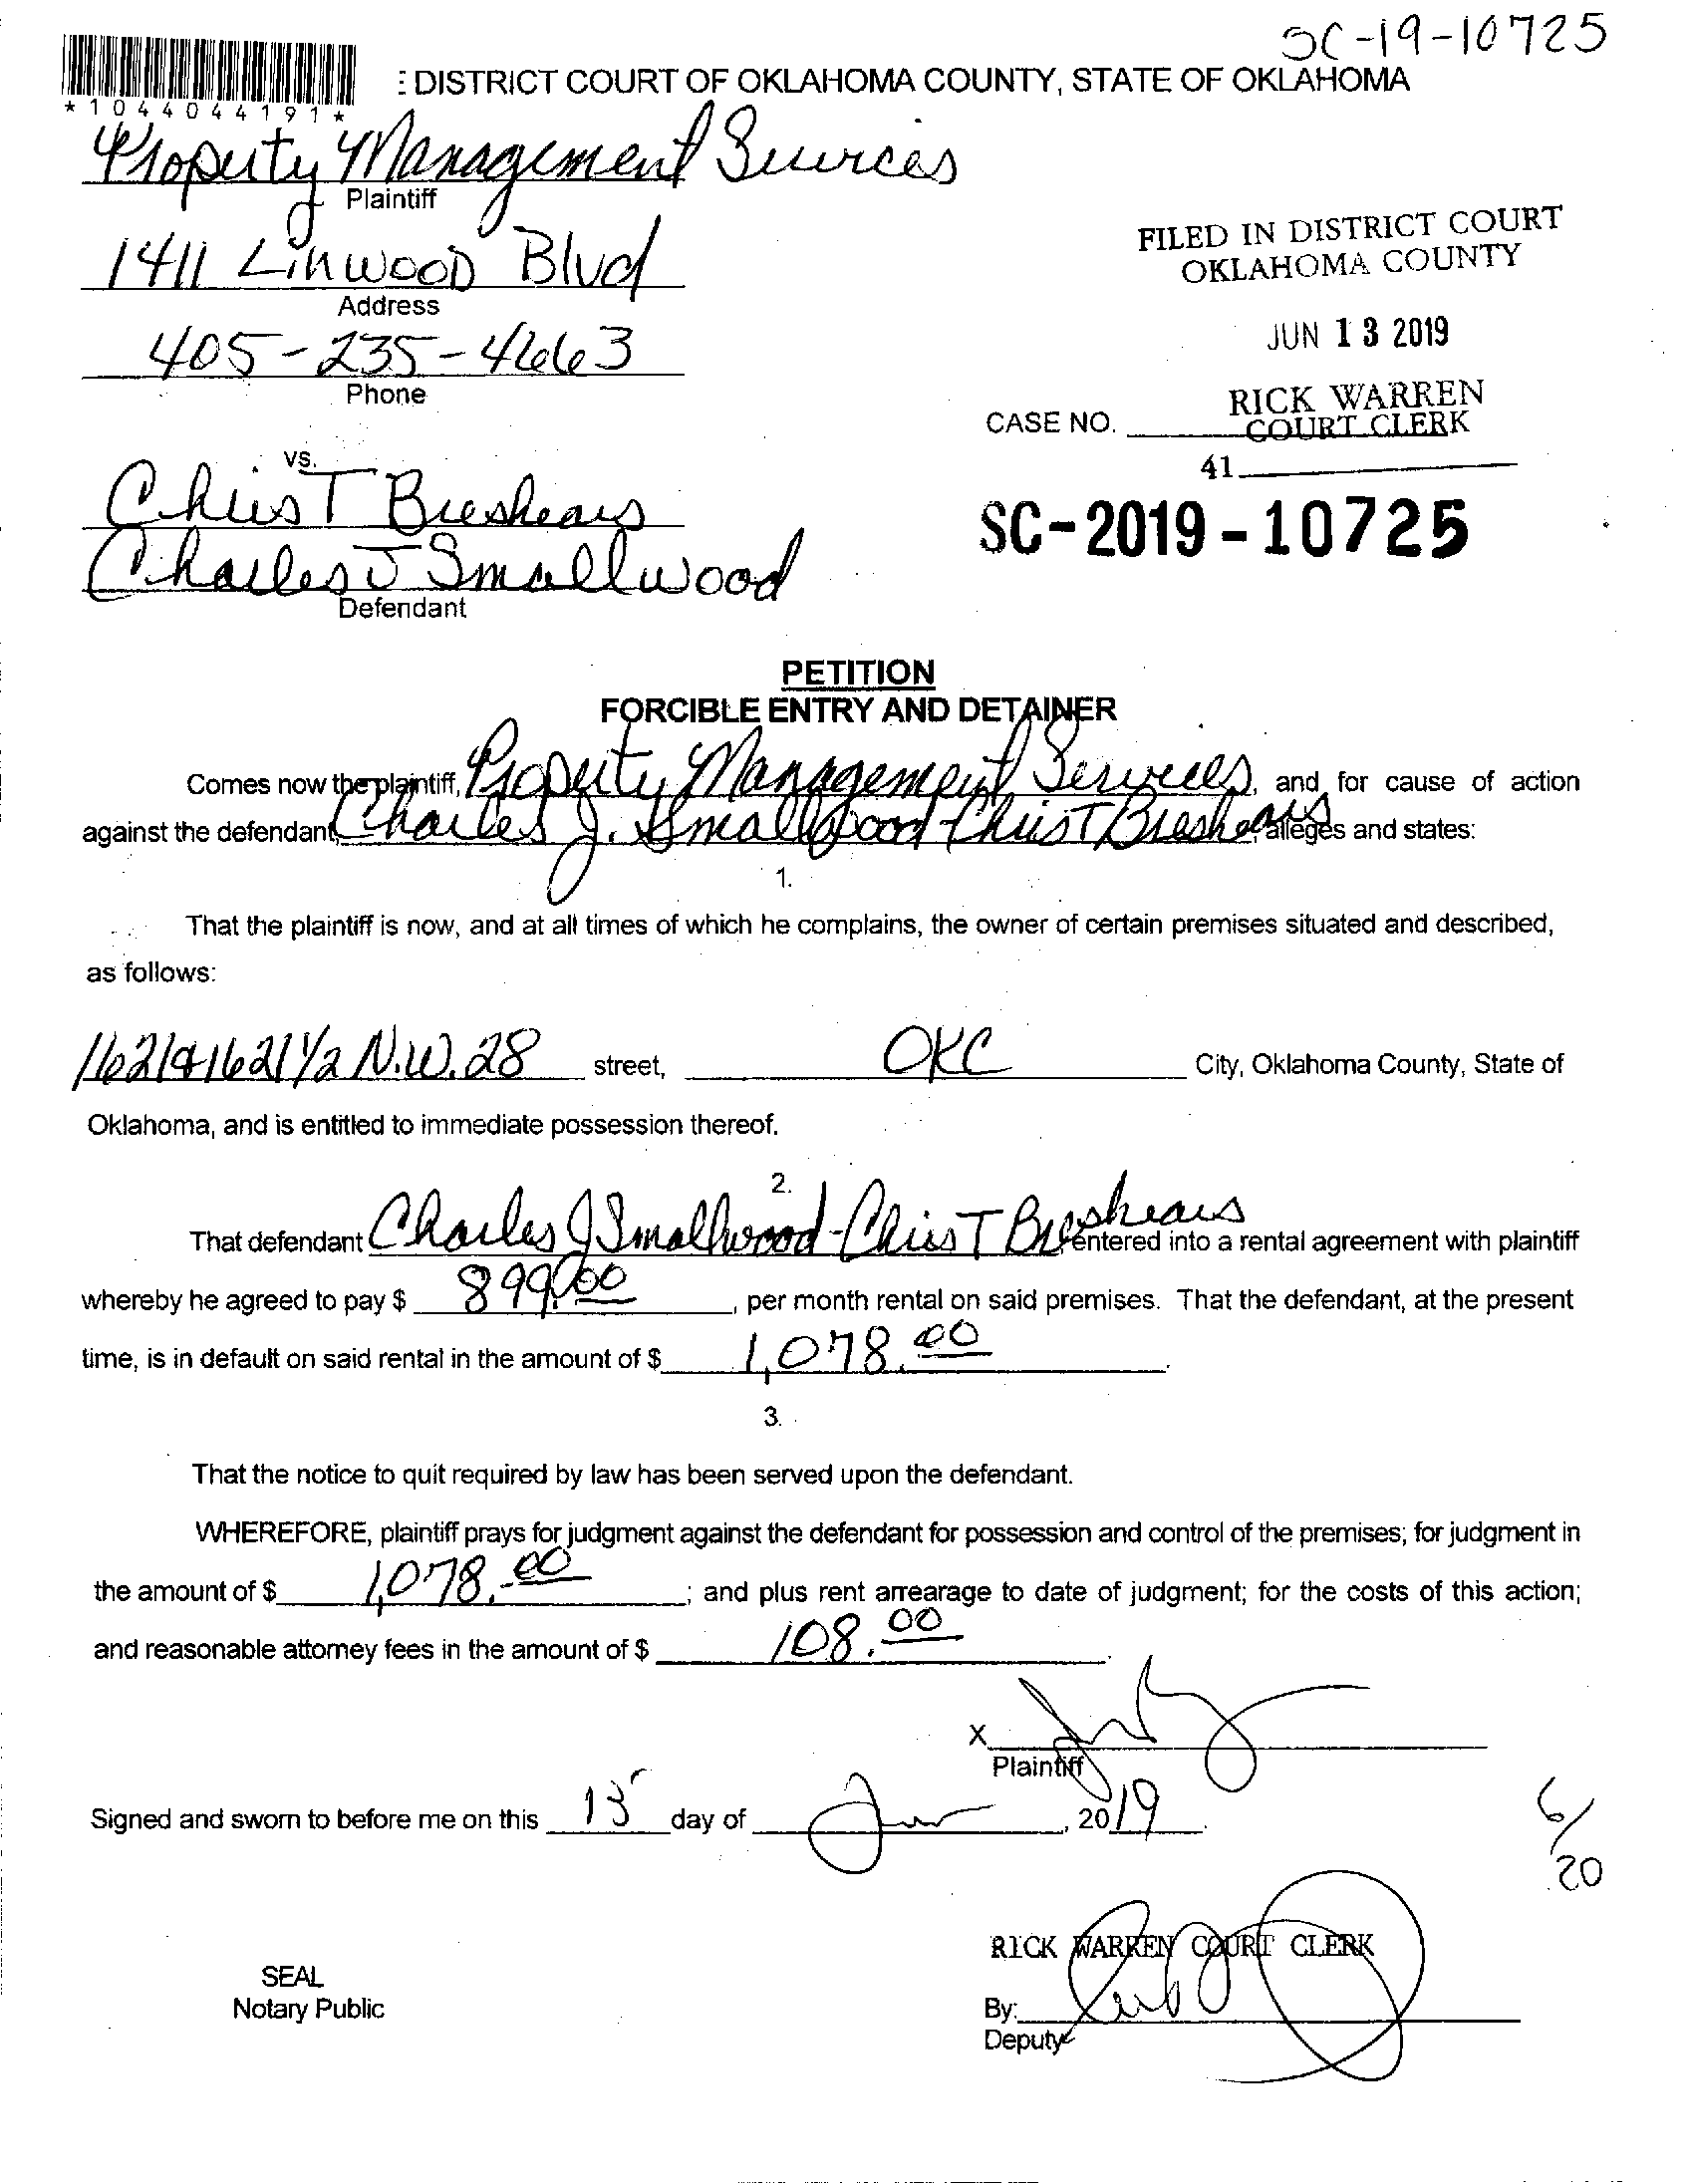 SC-19-10725
: DISTRICT COURT OF OKLAHOMA COUNTY, STATE OF OKLAHOMA
*1044044191*
Property Management Services
Plaintiff
1411 Linwood Blvd
Address
405-235-4663
Phone
FILED IN DISTRICT COURT
OKLAHOMA COUNTY
JUN 13 2019
RICK WARREN
COURT CLERK
CASE NO.
41
SC-2019-10725
vs.
Chris T Breshears
Charles J Smallwood
Defendant
PETITION
FORCIBLE ENTRY AND DETAINER
Comes now the plaintiff, Property Management Services, and for cause of action
against the defendant, Charles J. Smallwood - Chris T Breshears, alleges and states:
1.
That the plaintiff is now, and at all times of which he complains, the owner of certain premises situated and described,
as follows:
1621&1621 1/2 N.W. 28 street, OKC City, Oklahoma County, State of
Oklahoma, and is entitled to immediate possession thereof.
2.
That defendant Charles J Smallwood - Chris T Breshears entered into a rental agreement with plaintiff
whereby he agreed to pay $ 899.00, per month rental on said premises. That the defendant, at the present
time, is in default on said rental in the amount of $ 1,078.00.
3.
That the notice to quit required by law has been served upon the defendant.
WHEREFORE, plaintiff prays for judgment against the defendant for possession and control of the premises; for judgment in
the amount of $ 1,078.00; and plus rent arrearage to date of judgment; for the costs of this action;
and reasonable attorney fees in the amount of $ 108.00
X
Plaintiff
Signed and sworn to before me on this 13 day of Jun, 2019.
6/20
RICK WARREN COURT CLERK
SEAL
Notary Public
By:
Deputy